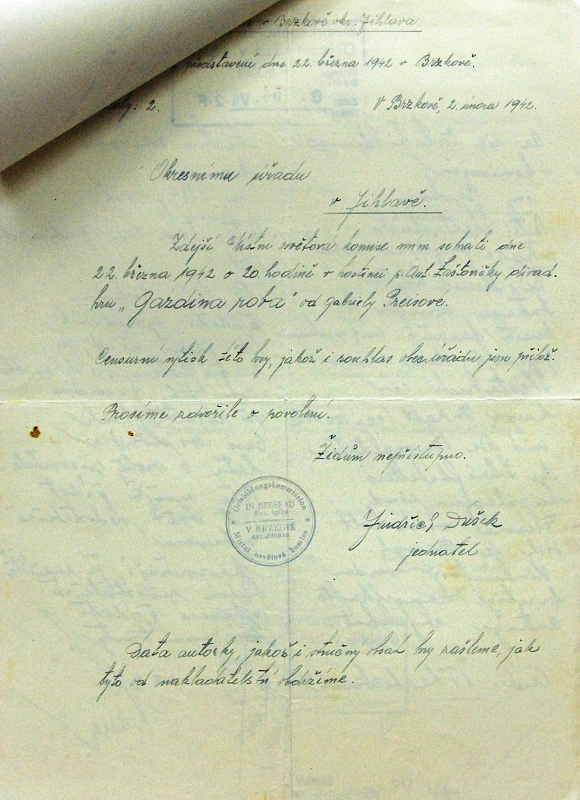 v Brzkově okr. Jihlava.
představení dne 22. března 1942 v Brzkově.
2.
V Brzkově, 2. února 1942.
Okresnímu úřadu
v Jihlavě.
Zdejší Místní osvětová komise míní sehrati dne
22. března 1942 o 20. hodině v hostinci p. Ant. divad.
hru „Gazdina roba" od Gabriely Preisove.
Censurní výtisk této hry, jakož i souhlas obec. úřadu jsou přilož.
Prosíme zdvořile o povolení.
Židům nepřístupno.
Ortsbildungskommission
IN BERSKAU
V BRZKOVĚ
Místní osvětová komise
Jindřich Dušek
jednatel
Data autorky, jakož i stručný obsah hry zašleme, jak
tyto od nakladatelství obdržíme.